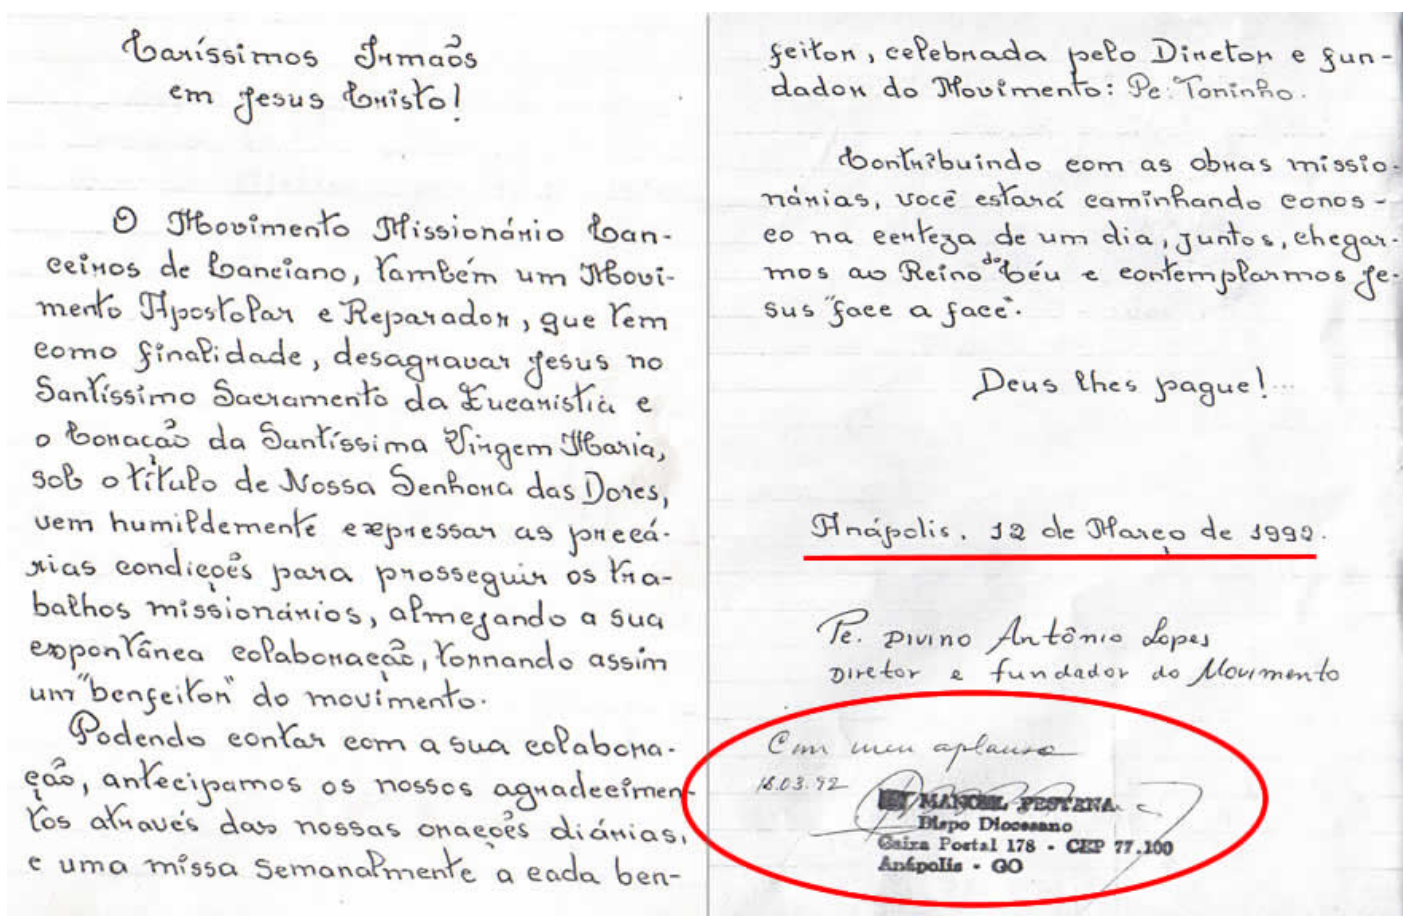 Caríssimos Irmãos
em Jesus Cristo!
O Movimento Missionário Lan-
ceiros de Lanciano, também um Movi-
mento Apostolar e Reparador, que tem
como finalidade, desagravar Jesus no
Santíssimo Sacramento da Eucaristia e
o Coração da Santíssima Virgem Maria,
sob o título de Nossa Senhora das Dores,
vem humildemente expressar as precá-
rias condições para prosseguir os tra-
balhos missionários, almejando a sua
expontânea colaboração, tornando assim
um "benfeitor" do movimento.
Podendo contar com a sua colabora-
ção, antecipamos os nossos agradecimen-
tos através das nossas orações diárias,
e uma missa semanalmente a cada ben-
feitor, celebrada pelo Diretor e fun-
dador do Movimento: Pe. Toninho.
Contribuindo com as obras missio-
nárias, você estará caminhando conos-
co na certeza de um dia, juntos, chegar-
mos ao Reino do Céu e contemplarmos Je-
sus "face a face".
Deus lhes pague!...
Anápolis, 12 de Março de 1992.
Pe. Divino Antônio Lopes
Diretor e fundador do Movimento
Com meu aplauso
18.03.92
MANOEL PESTANA
Bispo Diocesano
Caixa Postal 178 - CEP 77.100
Anápolis - GO